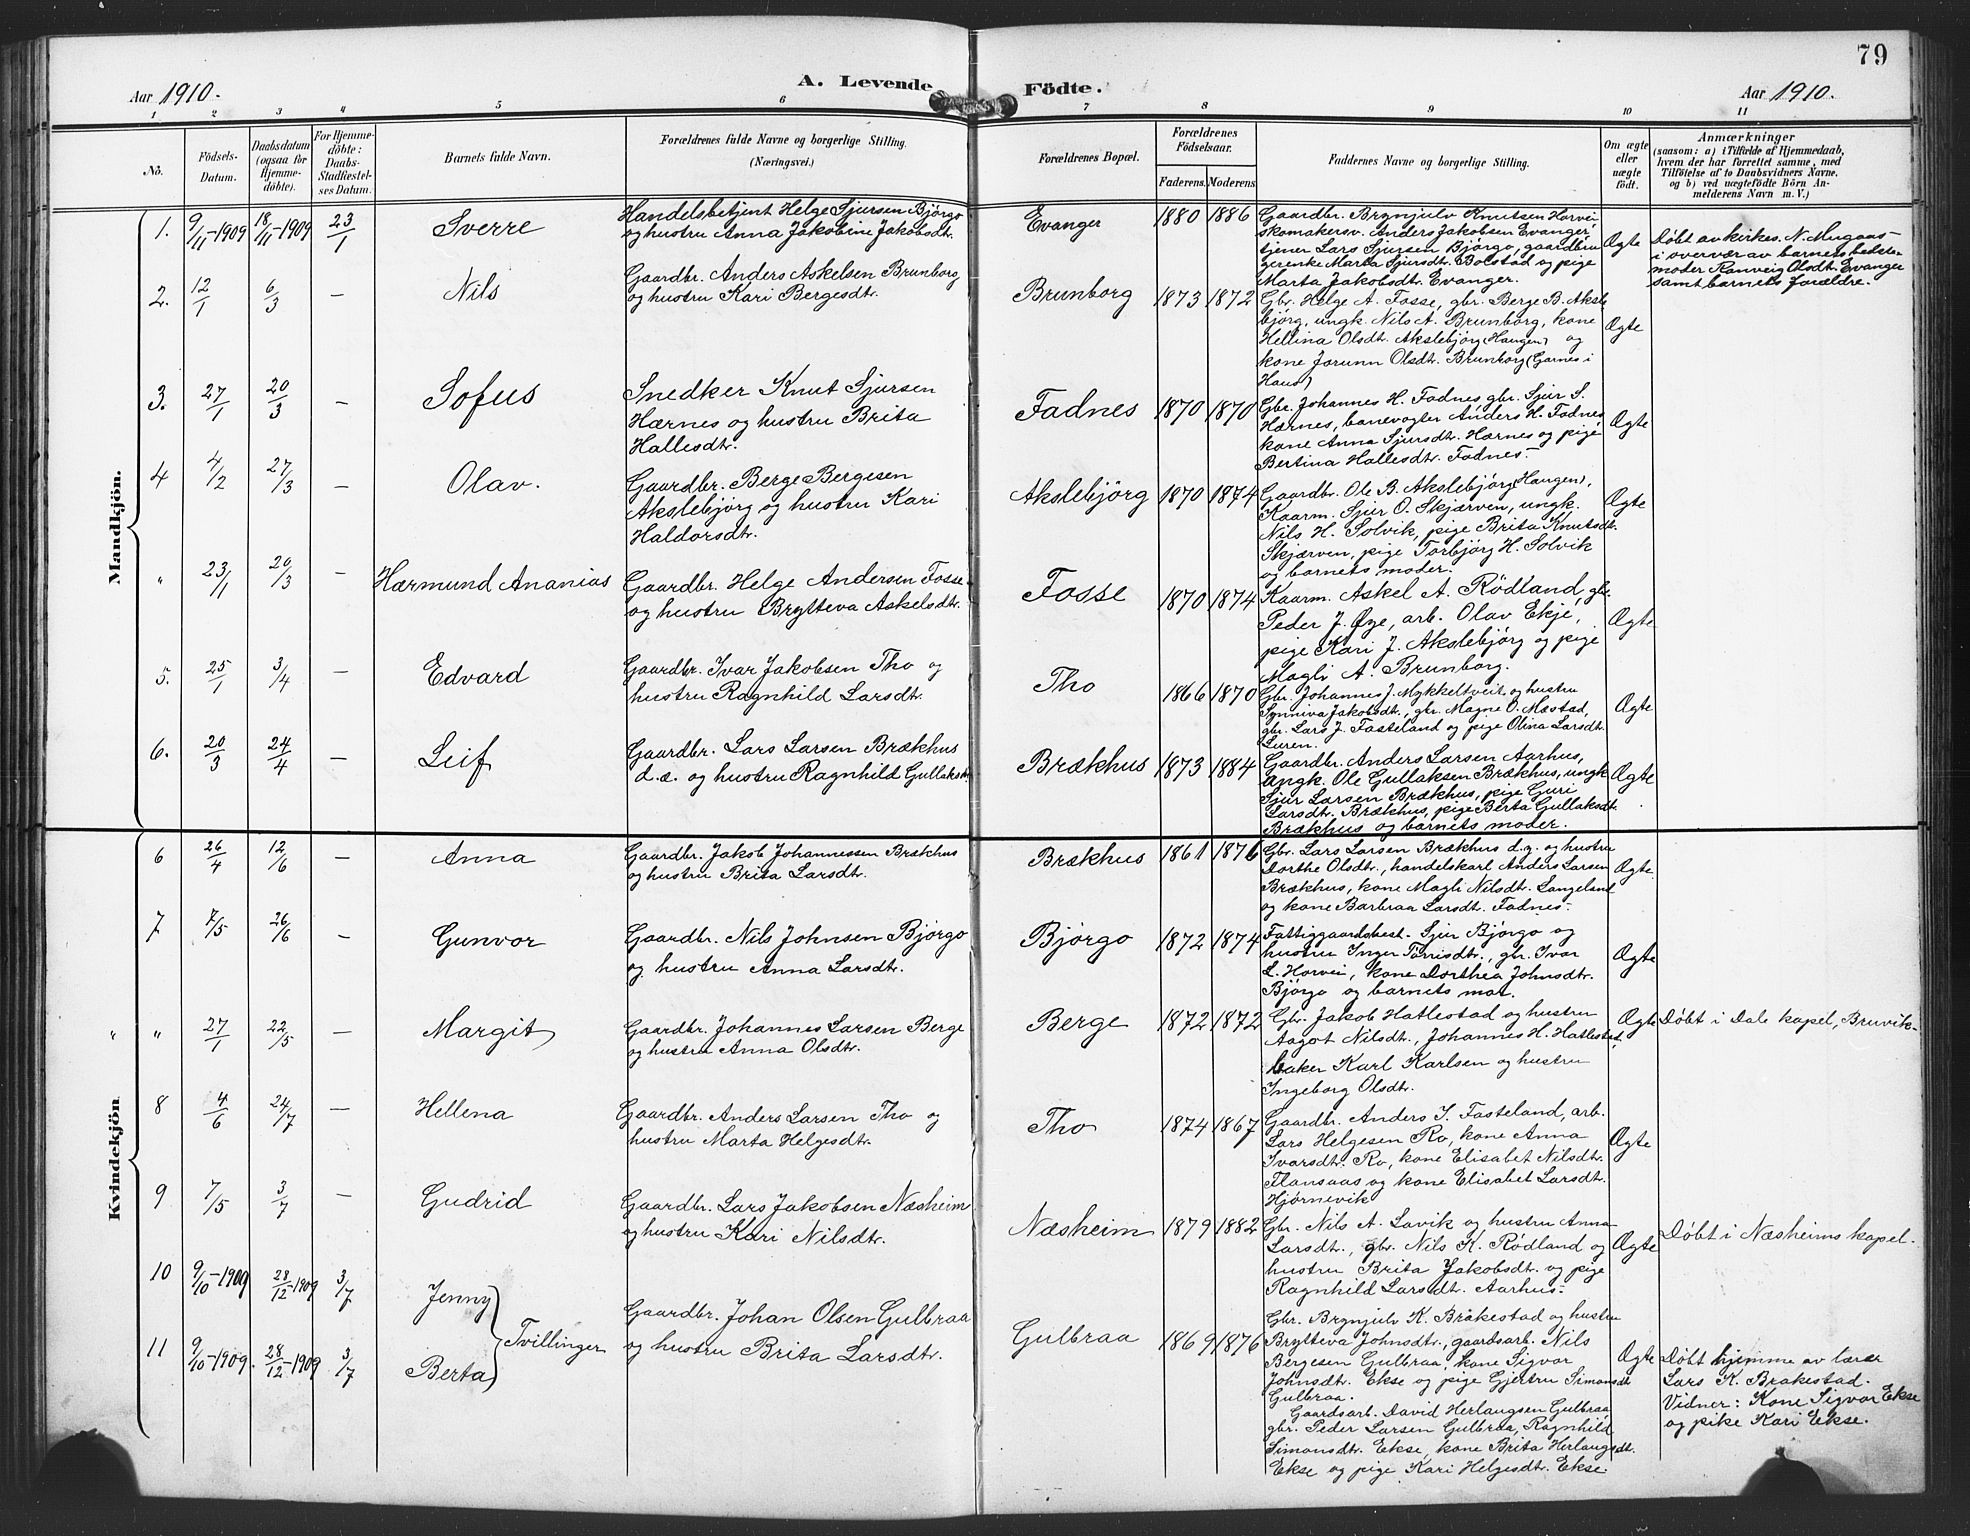 79
A. Levende Födte.
Aar 1910.
Aar 1910.
1 2 3 4 5 6 7 8 9 10 11
No.
Födsels-
Datum.
Daabsdatum
(ogsaa for
Hjemme-
döbte).
For Hjemme-
döbte:
Daabs-
Stadfæstel-
ses Datum.
Barnets fulde Navn.
Forældrenes fulde Navne og borgerlige Stilling.
(Næringsvei.)
Forældrenes Bopæl.
Forældrenes
Födselsaar.
Faderens. Moderens.
Faddernes Navne og borgerlige Stilling.
Om ægte
eller
uægte
födt.
Anmærkninger
(saasom: a) i Tilfælde af Hjemmedaab,
hvem der har forrettet samme, med
Tilföielse af to Daabsvidners Navne.
og b) ved uægtefödte Börn An-
melderens Navn m. V.)
Mandkjön.
1. 9/11-1909 18/11-1909 23/1 Sverre
Handelsbetjent Helge Sjursen Bjørgo
og hustru Anna Jakobine Jakobsdt.
Evanger 1880 1886
Gaardbr. Brynjulv Knutsen Horvei
skomakersv. Anders Jakobsen Evanger,
tjener Lars Sjursen Bjørgo, gaardbru
gerenke Marta Sjursdt. Bolstad og pige
Marta Jakobsdt. Evanger.
Ægte
Døbt av kirkes. N. Mugaas
i overvær av barnets beste-
moder Ranveig Olsdt. Evanger
samt barnets forældre.
2. 12/1 6/3 — Nils
Gaardbr. Anders Askelsen Brunborg
og hustru Kari Bergesdt.
Brunborg 1873 1872
Gbr. Helge A. Fosse, gbr. Berge B. Aksle
bjørg, ungk. Nils A. Brunborg, kone
Hellina Olsdt. Akslebjørg (Haugen) og
kone Jorunn Olsdt. Brunborg (Garnes i
Haus)
Ægte
3. 27/1 20/3 — Sofus
Snedker Knut Sjursen
Hærnes og hustru Brita
Hallesdt.
Fadnes 1870 1870
Gbr. Johannes H. Fadnes gbr. Sjur S.
Hærnes, banevogter Anders H. Fadnes,
kone Anna Sjursdt. Hærnes og pige
Bertina Hallesdt. Fadnes.
Ægte
4 4/2 27/3 — Olav.
Gaardbr. Berge Bergesen
Akslebjörg og hustru Kari
Haldorsdtr.
Akslebjörg 1870 1874
Gaardbr. Ole B. Akslebjörg (Haugen),
Kaarm. Sjur O. Skjærven, ungk.
Nils H. Solvik, pige Brita Knutsdt.
Skjærven, pige Torbjörg H. Solvik
og barnets moder.
Ægte
" 23/1 20/3 — Hærmund Ananias
Gaardbr. Helge Andersen Fosse
og hustru Brytteva Askelsdt.
Fosse 1870 1874
Kaarm. Askel A. Rödland, gbr.
Peder J. Øye, arb. Olav Ekje,
pige Kari J. Akslebjörg og pige
Magli A. Brunborg.
Ægte
5. 25/1 3/4 — Edvard
Gaardbr. Ivar Jakobsen Tho og
hustru Ragnhild Larsdt.
Tho 1866 1870
Gbr. Johannes J. Mykkeltveit og hustru
Synniva Jakobsdt., gbr. Magne O. Mæstad,
gbr. Lars J. Fasteland og pige Olina Larsdt.
Luren.
Ægte
6. 20/3 24/4 — Leif
Gaardbr. Lars Larsen Brækhus
d.æ. og hustru Ragnhild Gullaksdt
Brækhus 1873 1884
Gaardbr. Anders Larsen Aarhus,
ungk. Ole Gullaksen Brækhus, ungk
Sjur Larsen Brækhus, pige Guri
Larsdt. Brækhus, pige Berta Gullaksdt.
Brækhus og barnets moder.
Ægte
Kvindekjön
6 26/4 12/6 — Anna
Gaardbr. Jakob Johannessen Brækhus
og hustru Brita Larsdt.
Brækhus 1861 1876
Gbr. Lars Larsen Brækhus d.y. og hustru
Dorthe Olsdt., handelskarl Anders Larsen
Brækhus, kone Magli Nilsdt. Langeland
og kone Barbraa Larsdt. Fadnes.
Ægte
7 7/5 26/6 — Gunvor
Gaardbr. Nils Johnsen Bjørgo
og hustru Anna Larsdt.
Bjørgo 1872 1874
Fattiggaardsbest. Sjur Bjørgo og
hustru Inger Tørrisdt., gbr. Ivar
L. Horvei, kone Dorthea Johnsdt.
Bjørgo og barnets mor.
Ægte
" " 27/1 22/5 — Margit
Gaardbr. Johannes Larsen Berge
og hustru Anna Olsdt.
Berge 1872 1872
Gbr. Jakob Hatlestad og hustru
Aagot Nilsdt., Johannes H. Hatlestad,
baker Karl Karlsen og hustru
Ingeborg Olsdt.
Ægte
Døbt i Dale kapel, Bruvik.
8 4/6 24/7 — Hellena
Gaardbr. Anders Larsen Tho og
hustru Marta Helgesdt.
Tho 1874 1867
Gaardbr. Anders I. Fasteland, arb.
Lars Helgesen Ro, kone Anna
Ivarsdt. Ro, kone Elisabet Nilsdt.
Flansaas og kone Elisabet Larsdt.
Hjörnevik
Ægte
9 7/5 3/7 — Gudrid
Gaardbr. Lars Jakobsen Næsheim
og hustru Kari Nilsdt.
Næsheim 1879 1882
Gbr. Nils A. Lavik og hustru Anna
Larsdt., gbr. Nils K. Rödland og
hustru Brita Jakobsdt. og pige
Ragnhild Larsdt. Aarhus.
Ægte
Døbt i Næsheims kapel.
10 9/10-1909 28/12-1909 3/7 Jenny
11 9/10-1909. 28/12-1909 3/7 Berta
Tvillinger
Gaardbr. Johan Olsen Gulbraa
og hustru Brita Larsdt.
Gulbraa 1869 1876
Gbr. Brynjulv K. Bråkestad og hustru
Brytteva Johnsdt., gaardsarb. Nils
Bergesen Gulbraa, kone Sigvor
Johnsdt. Ekse og pige Gjertru Simonsdt
Gulbraa.
Gaardsarb. David Herlaugsen Gulbraa,
gbr. Peder Larsen Gulbraa, Ragnhild
Simonsdt. Ekse, kone Brita Herlaugsdt.
Ekse og pige Kari Helgesdt. Ekse.
Ægte
Døbt hjemme av lærer
Lars K. Brakestad.
Vidner: Kone Sigvor Ekse
og pike Kari Ekse.